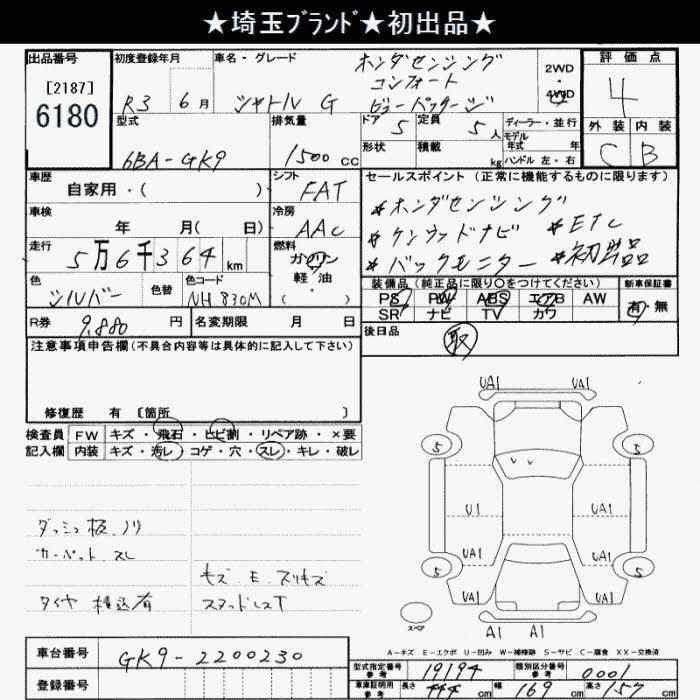 ★埼玉ﾌﾞﾗﾝﾄﾞ★初出品★
出品番号
[2187]
6180
初度登録年月
R3 6月
車名・グレード
ホンダセンシング
コンフォート
シャトル G ビューパッケージ
2WD
・
4WD
評価点
4
外装 内装
C B
型式
6BA-GK9
排気量
1500 cc
ドア 5
定員 5人
形状
積載 kg
ディーラー・並行
モデル年式 年
ハンドル 左・右
車歴
自家用・( )
シフト
FAT
車検
年 月( 日)
冷房
AAC
走行
5万6千364 km
燃料
ガソリン
軽油
・( )
色
シルバー
色替
色コード
NH830M
R券 9,880 円
名変期限 月 日
セールスポイント (正常に機能するものに限ります)
*ホンダセンシング
*ケンウッドナビ *ETC
*バックモニター *初出品
装備品(純正品に限り○をつけてください)
PS PW ABS エアB AW
SR ナビ TV カワ
新車保証書
有・無
後日品
取
注意事項申告欄(不具合内容等は具体的に記入して下さい)
修復歴 有 [箇所 ]
検査員記入欄
FW キズ・飛石・ヒビ割・リペア跡・×要
内装 キズ・汚レ・コゲ・穴・スレ・キレ・破レ
ダッシュ板、ノリ
カーペット スレ
キズ、E、スリキズ
タイヤ 積込有 スタッドレスT
UA1 UA1
5 5
U1 UA1
UA1 UA1
5 5
UA1 UA1
A1 A1
スペア
A-キズ E-エクボ U-凹み W-補修跡 S-サビ C-腐食 XX-交換済
車台番号
GK9-2200230
登録番号
型式指定番号
参考
19194
類別区分番号
参考
0001
車庫証明用
参考
長さ 444 cm
幅 169 cm
高さ 157 cm